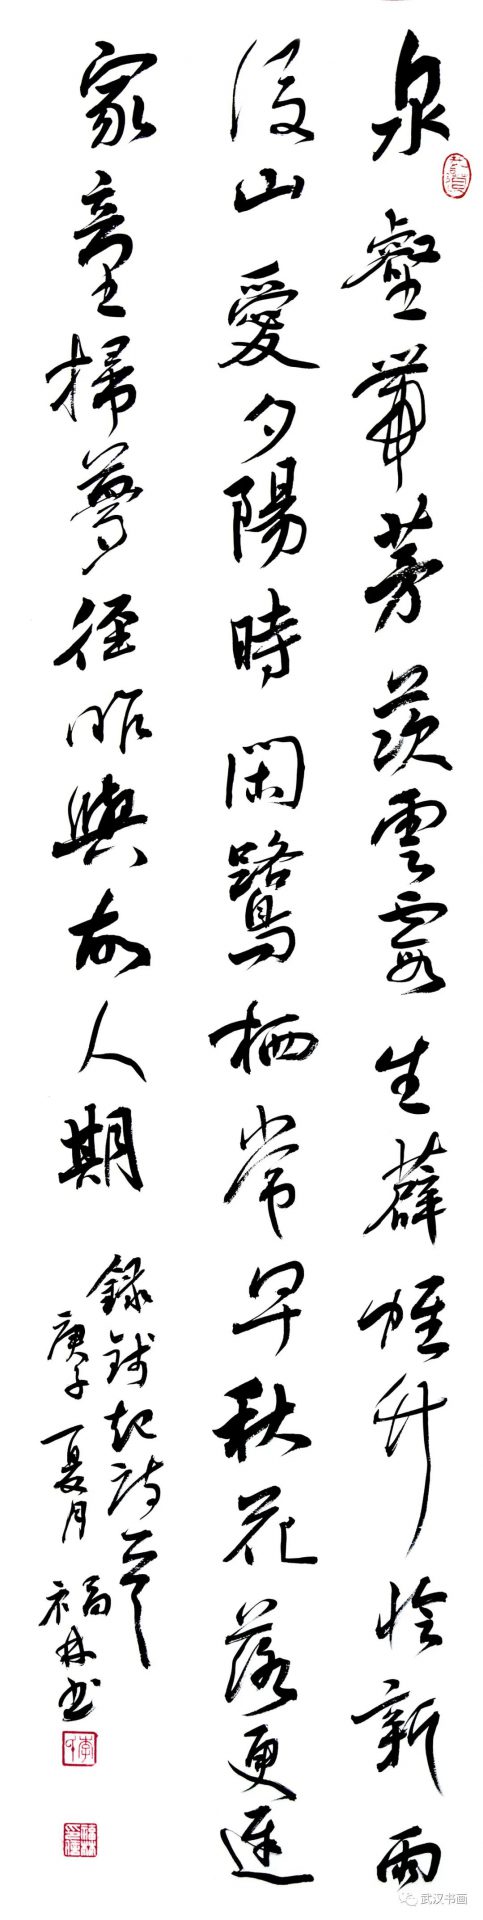 泉壑帶茅茨雲霞生薜帷竹怜新雨
後山愛夕陽時閑鷺栖常早秋花落更遲
家童掃蘿徑昨與故人期
録錢起詩一章
庚子夏月 福林书
武汉书画